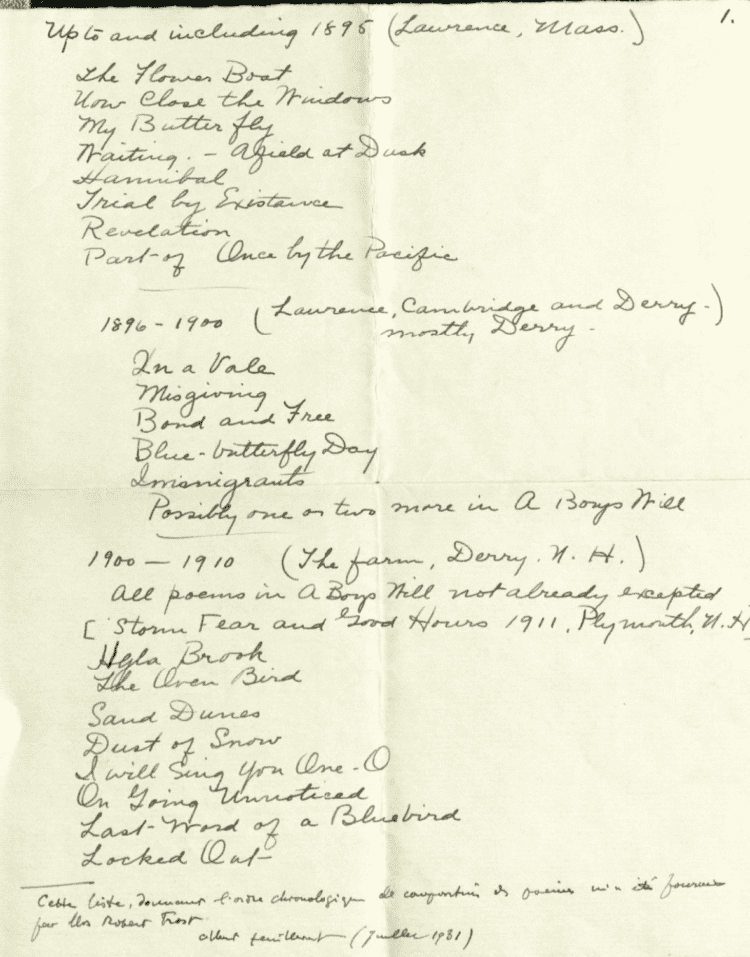 1.
Up to and including 1895 (Lawrence, Mass.)
The Flower Boat
Now Close the Windows
My Butterfly
Waiting. – Afield at Dusk
Hannibal
Trial by Existance
Revelation
Part of Once by the Pacific
1896 – 1900 (Lawrence, Cambridge and Derry –)
mostly Derry –
In a Vale
Misgiving
Bond and Free
Blue-butterfly Day
Immigrants
Possibly one or two more in A Boys Will
1900 — 1910 (The farm, Derry. N. H.)
All poems in A Boys Will not already excepted
[ Storm Fear and Good Hours 1911, Plymouth, N. H
Hyla Brook
The Oven Bird
Sand Dunes
Dust of Snow
I will Sing You One-O
On Going Unnoticed
Last Word of a Bluebird
Locked Out
Cette liste, donnant l'ordre chronologique de composition des poèmes m'a été fournie
par Mrs Robert Frost.
Albert Feuillerat (Juillet 1931)